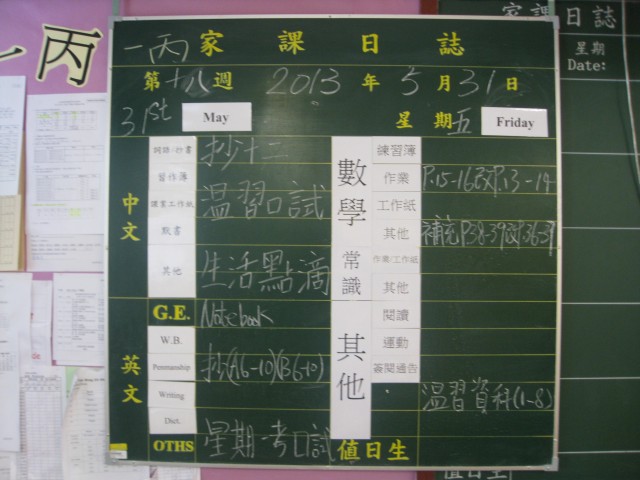 一丙 家課日誌
第十八週 2013年5月31日
31st May 星期五 Friday
中文
詞語/抄書 抄十二
習作簿
課業工作紙 温習口試
默書
其他 生活點滴
英文
G.E. Notebook
W.B.
Penmanship 抄(A6-10)(B6-10)
Writing
Dict.
OTHS 星期一考口試
數學
練習簿
作業 P.15-16改P.13-14
工作紙
其他 補充P38-39改P.36-37
常識
作業/工作紙
其他
其他
閱讀
運動
簽閱通告
温習資科(1-8)
值日生
一丙
家課日誌
星期
Date:
值日生